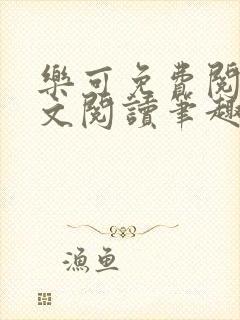 樂可免費閱
文閱讀筆趣
漁魚